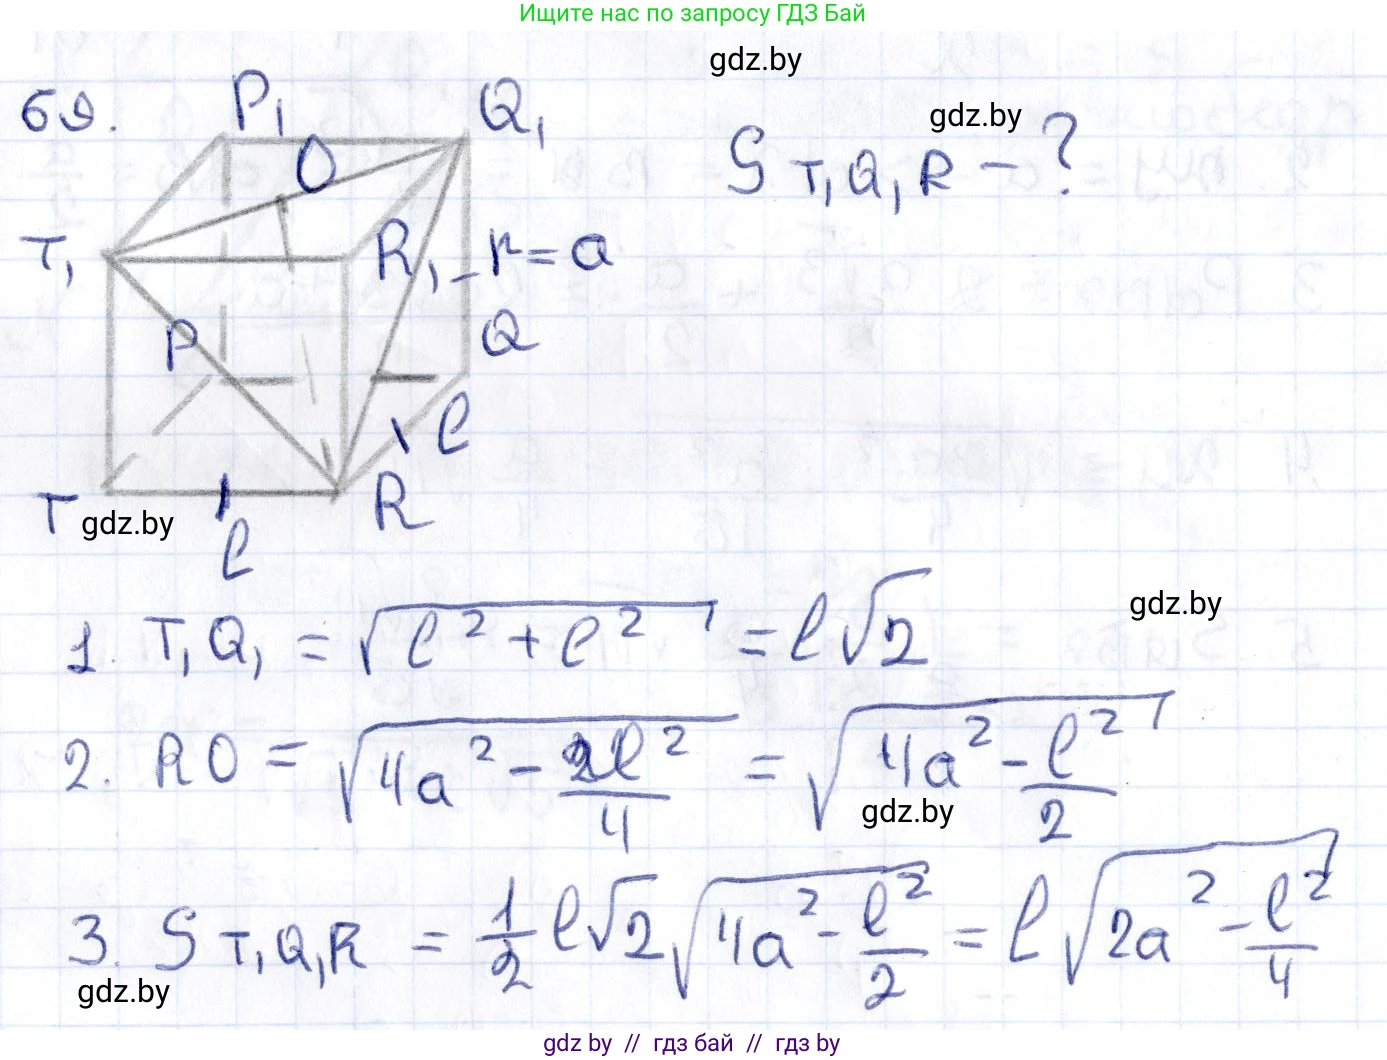 Ищите нас по запросу ГДЗ Бай
gdz.by
69.
P₁
Q₁
gdz.by
O
S T₁Q₁R - ?
T₁
R₁
r = a
P
Q
l
T
gdz.by
R
l
gdz.by
1. T₁Q₁ = √(l² + l²) = l√2
2. RO = √(4a² - 2l²/4) = √(4a² - l²/2)
gdz.by
3. S T₁Q₁R = 1/2 l√2 √(4a² - l²/2) = l√(2a² - l²/4)
gdz.by
gdz.by // гдз бай // гдз by